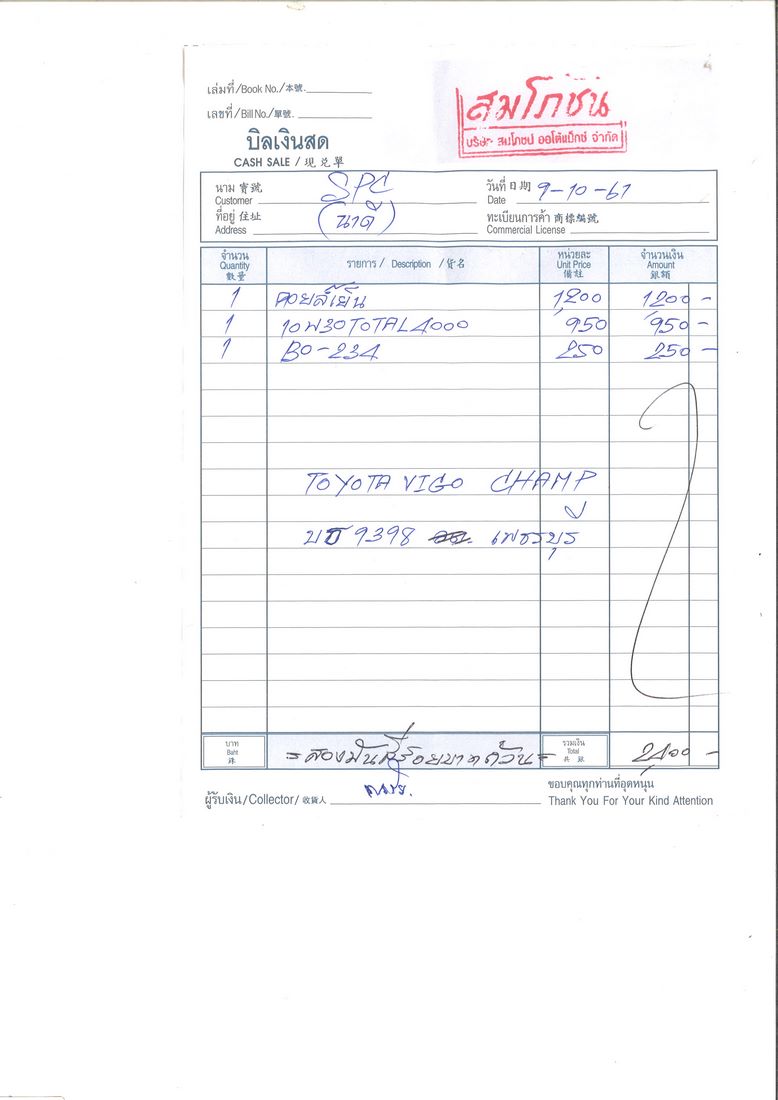 เล่มที่/Book No./本號.
เลขที่/Bill No./單號.
สมโภชน
บริษัท สมโภชน ออโต้แม็กซ์ จำกัด
บิลเงินสด
CASH SALE / 現兌單
นาม 寶號 SPC วันที่ 日期 9-10-61
Customer Date
ที่อยู่ 住址 (นาดี) ทะเบียนการค้า 商標編號
Address Commercial License
จำนวน Quantity 數量 รายการ / Description / 貨名 หน่วยละ Unit Price 備註 จำนวนเงิน Amount 銀額
1 คอยล์เย็น 1,200 1,200 -
1 10W30 TOTAL 4000 950 950 -
1 BO-234 250 250 -
TOYOTA VIGO CHAMP
9398 เพชรบุรี
บาท Baht 銖 = สองพันสี่ร้อยบาทถ้วน = รวมเงิน Total 共銀 2,400 -
ผู้รับเงิน/Collector/收貨人
ขอบคุณทุกท่านที่อุดหนุน
Thank You For Your Kind Attention